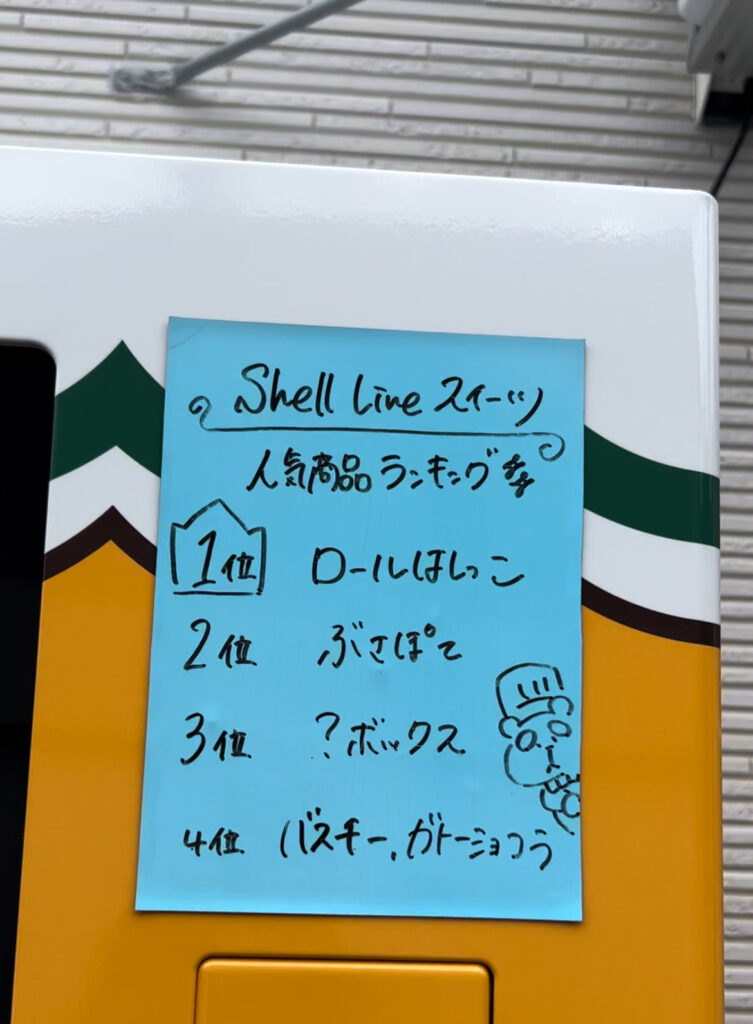 Shell Line スイーツ
人気商品ランキング
1位 ロールはしっこ
2位 ぶさぽて
3位 ?ボックス
4位 バスチー、ガトーショコラ